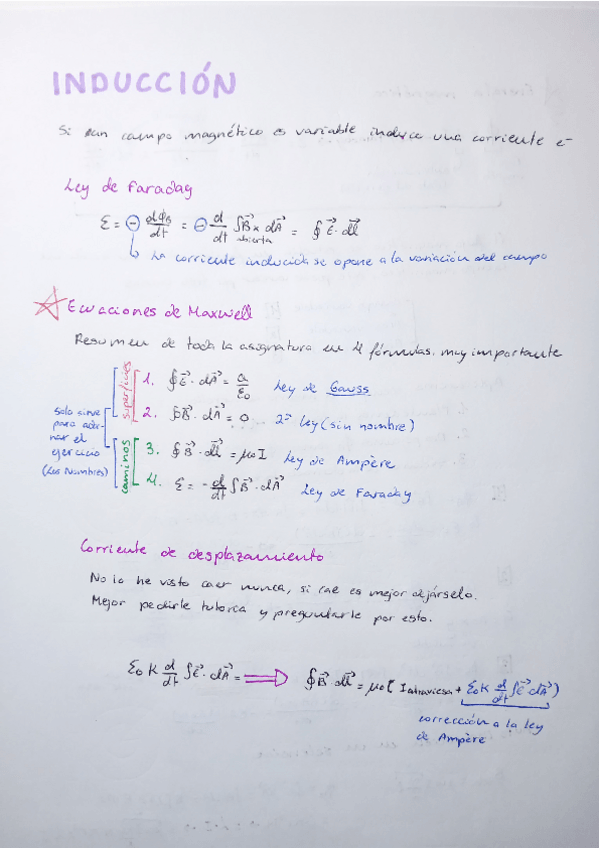 INDUCCIÓN
Si un campo magnético es variable induce una corriente e⁻
Ley de Faraday
Ɛ = ⊖ dΦB/dt = ⊖ d/dt ∫B⃗ x dA⃗ = ∮ E⃗ · dl⃗
abierta
La corriente inducida se opone a la variación del campo
Ecuaciones de Maxwell
Resumen de toda la asignatura en 4 fórmulas. muy importante
superficies
1. ∮E⃗ · dA⃗ = Q/Ɛ₀ Ley de Gauss
2. ∮B⃗ · dA⃗ = 0 2ª Ley (sin nombre)
solo sirve
para
el
ejercicio
(Los Nombres)
caminos
3. ∮B⃗ · dl⃗ = μ₀I Ley de Ampère
4. Ɛ = - d/dt ∫B⃗ · dA⃗ Ley de Faraday
Corriente de desplazamiento
No lo he visto caer nunca, si cae es mejor dejárselo.
Mejor pedirle tutoría y preguntarle por esto.
Ɛ₀ K d/dt ∫E⃗ · dA⃗ = ⇒ ∮B⃗ · dl⃗ = μ₀( I atraviesa + Ɛ₀ K d/dt ∫E⃗ dA⃗)
corrección a la ley
de Ampère